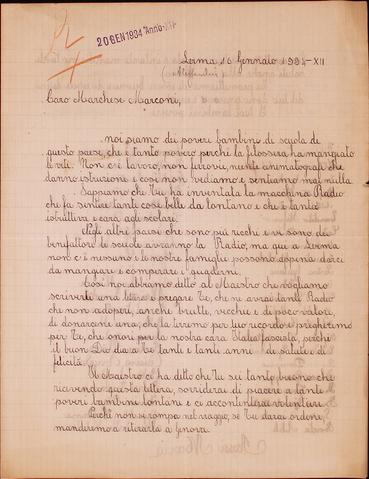 20 GEN 1934 Anno XII
Lerma 16 Gennaio 1934-XII
(Alessandria)
Caro Marchese Marconi,
noi siamo dei poveri bambini di scuola di
questo paese, che è tanto povero perchè la filossera ha mangiato
le viti. Non c'è lavoro, non ferrovie, niente cinematografi che
danno istruzione e così non vediamo e sentiamo mai nulla.
Sappiamo che Tu hai inventata la macchina Radio
che fa sentire tante cose belle da lontano e che è tanto
istruttiva e cara agli scolari.
Negli altri paesi che sono più ricchi e vi sono dei
benefattori le scuole avranno la Radio, ma qui a Lerma
non c'è nessuno e le nostre famiglie possono appena darci
da mangiare e comperare i quaderni.
Così noi abbiamo ditto al Maestro che vogliamo
scriverti una lettera e pregare Te, che ne avrai tante Radio
che non adoperi, anche brutte, vecchie e di poco valore,
di donarcene una, che la terremo per tuo ricordo e pregheremo
per Te, che onori per la nostra cara Italia fascista, perchè
il buon Dio dia a Te tanti e tanti anni di salute e di
felicità.
Il Maestro ci ha ditto che Tu sei tanto buono che
ricevendo questa lettera, sorriderai di piacere a tanti
poveri bambini lontani e ci accontenterai volentieri.
Perchè non si rompa nel viaggio, se Tu darai ordine,
manderemo a ritirarla a Genova.